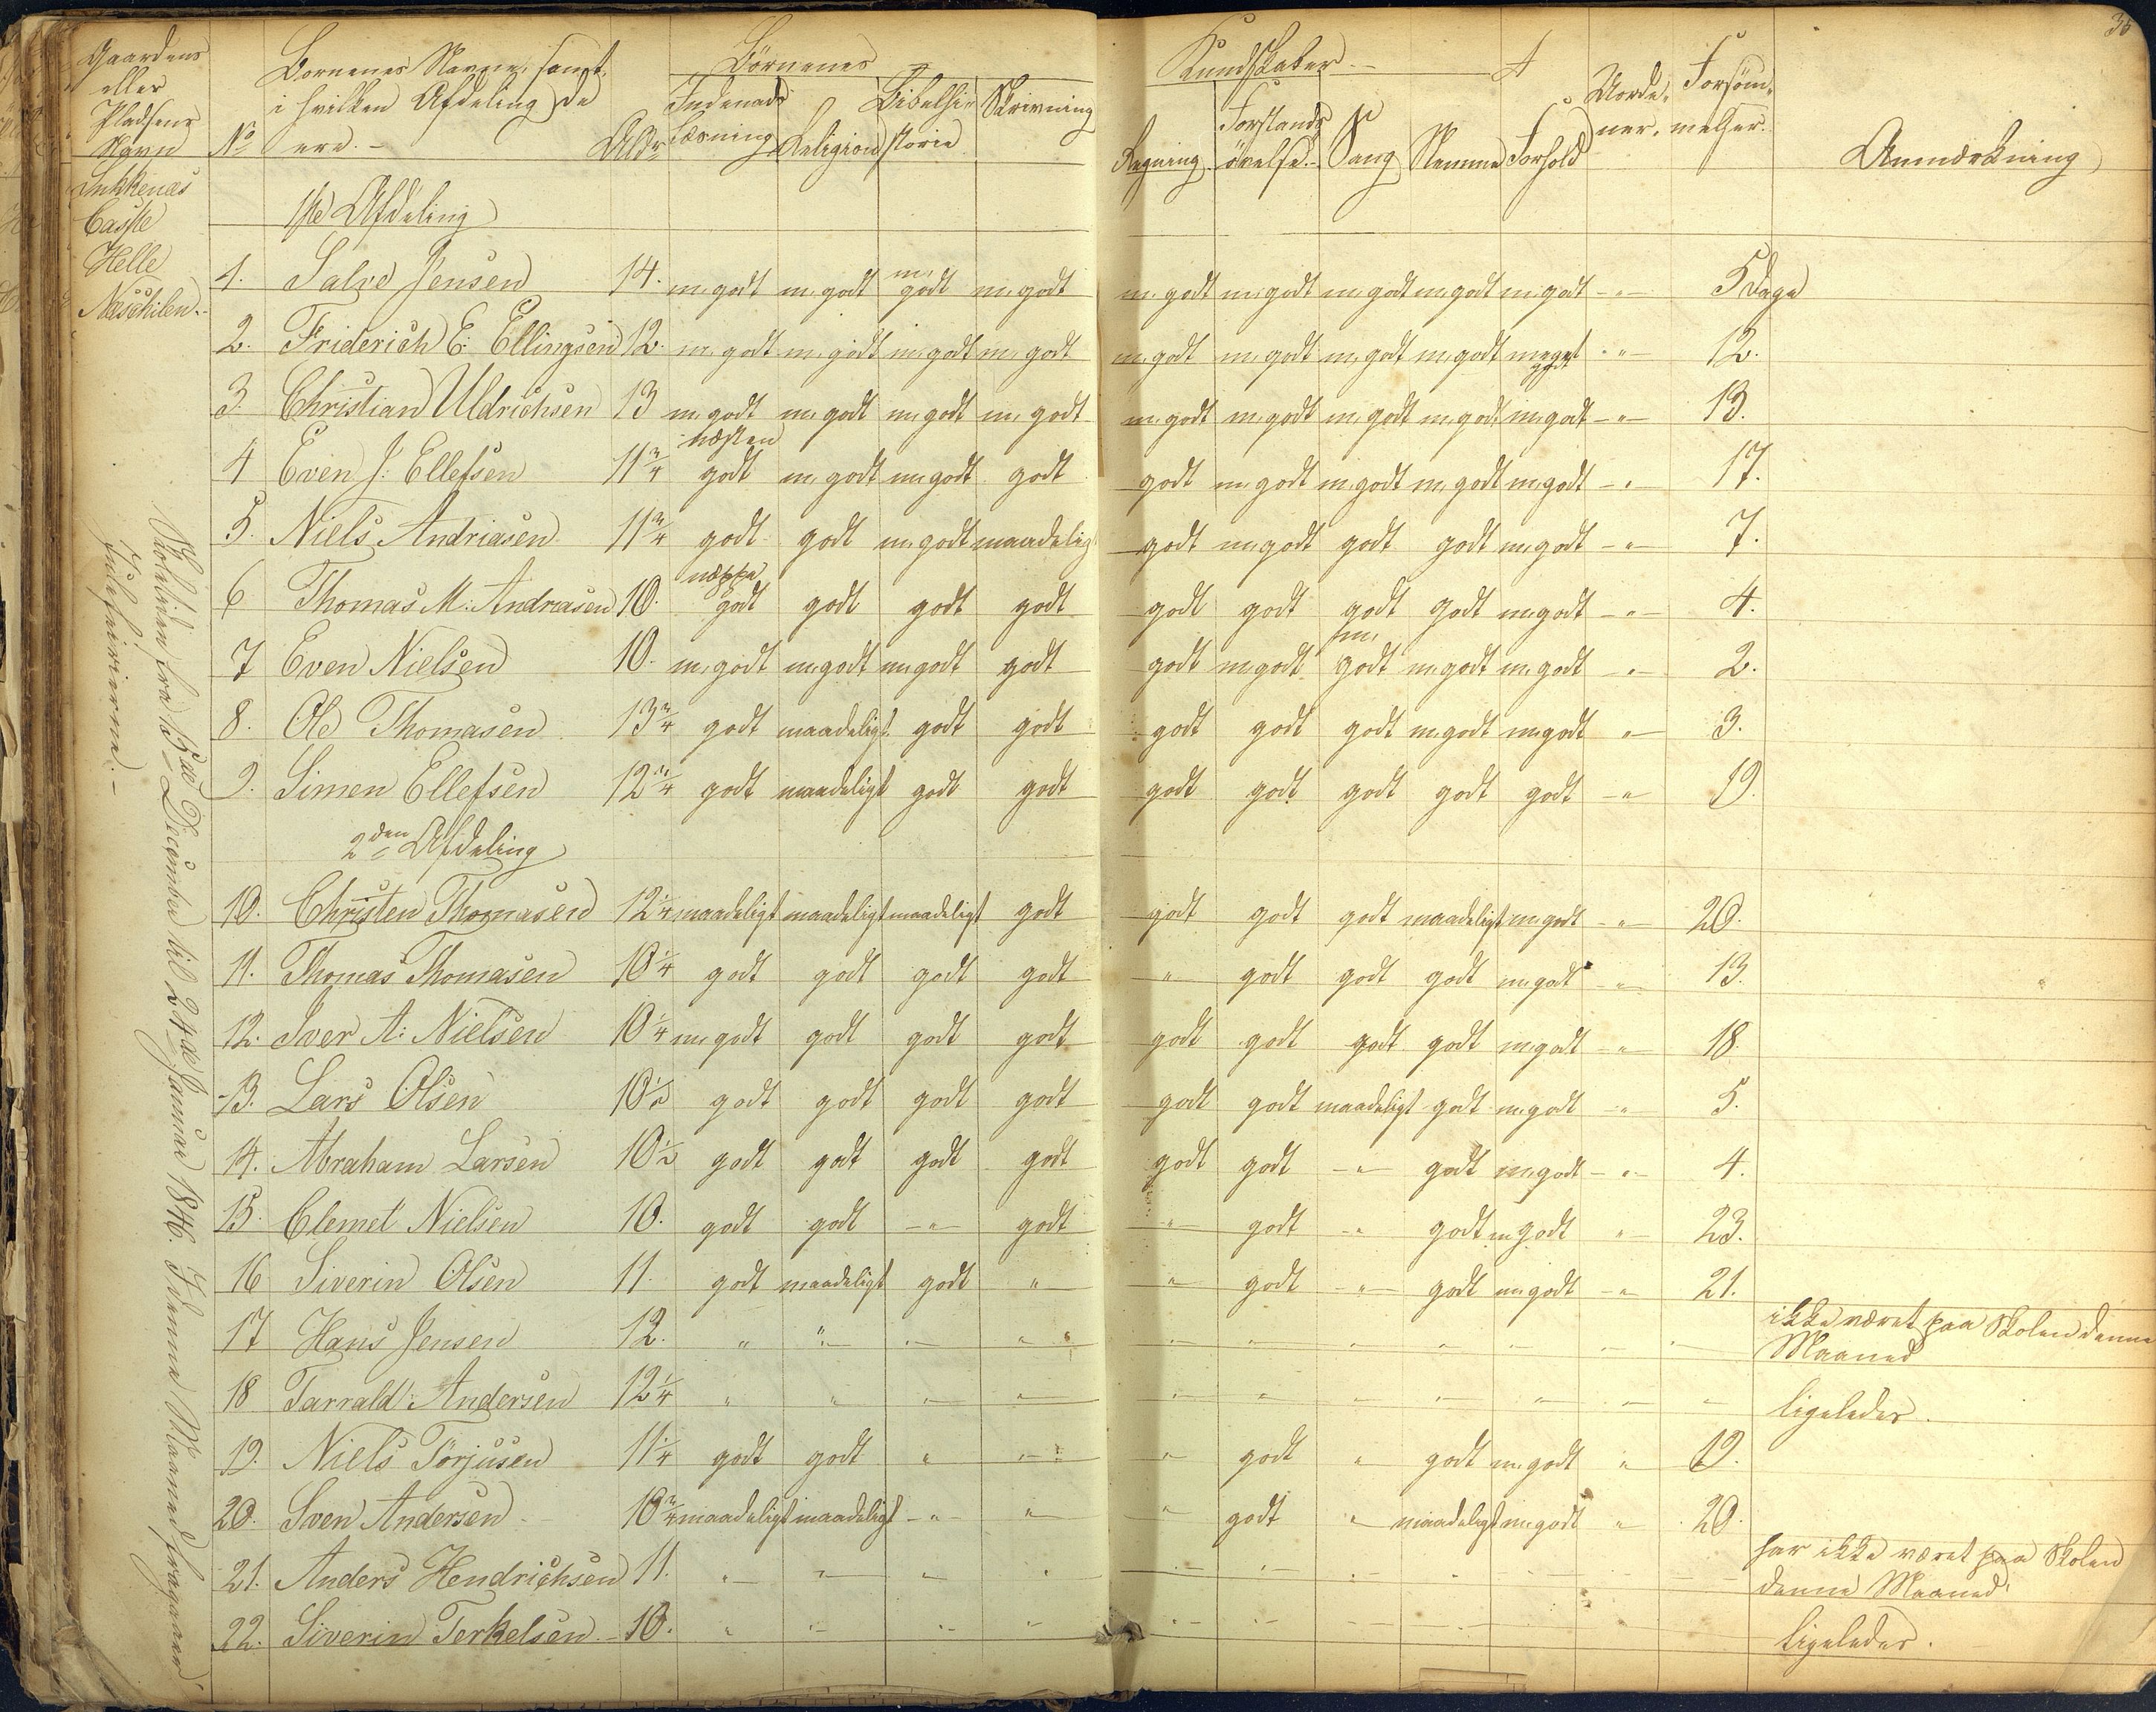 35
Gaardens eller Pladsens Navn
No
Børnenes Navne, samt i hvilken Afdeling de ere. -
Alder
Børnenes Kundskaber
Indenads Læsning
Religion
Bibelhistorie
Skrivning
Regning
Forstands øvelse.
Sang
Nemme
Forhold
Uordener.
Forsømmelser.
Anmærkning
Helle
Næschilen
1ste Afdeling
1. Salve Jensen 14. m. godt m. godt m. godt m. godt m. godt m. godt m. godt m. godt m. godt - " - 5 dage
2. Friderich E: Ellingsen 12. m. godt m. godt m. godt m. godt m. godt m. godt m. godt m. godt meget godt - " - 12.
3. Christian Uldrichsen 13 m. godt m. godt m. godt m. godt m. godt m. godt m. godt m. godt m. godt - " - 13.
4 Even J: Ellefsen 11 3/4 næsten godt m. godt m. godt godt godt m. godt m. godt m. godt m. godt - " - 17.
5. Niels Andriasen 11 3/4 godt godt m. godt maadeligt godt m. godt godt godt m. godt - " - 7.
6 Thomas M: Andriasen 10. neppe godt godt godt godt godt godt godt godt m. godt - " - 4.
7 Even Nielsen 10. m. godt m. godt m. godt godt godt m. godt m. godt m. godt m. godt - " - 2.
8. Ole Thomasen 13 3/4 godt maadeligt godt godt godt godt godt m. godt m. godt " - 3.
9. Simen Ellefsen 12 3/4 godt maadeligt godt godt godt godt godt godt godt - " 19.
2den Afdeling
10. Christen Thomasen 12 1/4 maadeligt maadeligt maadeligt godt godt godt godt maadeligt m. godt - " - 20.
11. Thomas Thomasen 10 1/4 godt godt godt godt " godt godt godt m. godt - " - 13.
12. Iver A: Nielsen 10 1/4 m. godt godt godt godt godt godt godt godt m. godt - " - 18.
13. Lars Olsen 10 1/2 godt godt godt godt godt godt maadeligt godt m. godt - " 5.
14. Abraham Larsen 10 1/2 godt godt godt godt godt godt - " - godt m. godt - " - 4.
15. Clemet Nielsen 10. godt godt - " - godt " godt - " godt m. godt " - 23.
16 Siverin Olsen 11. godt maadeligt godt " " godt - " - godt m. godt - " 21.
17 Hans Jensen 12. " " " " " " " " " " " ikke været paa Skolen denne Maaned
18 Tarrald Andersen 12 1/4 " " " " " " " " " " " ligeledes.
19. Niels Tørjusen 11 1/4 godt godt " " " godt " godt m. godt " 19.
20. Sven Andersen 10 3/4 maadeligt maadeligt - " - " " godt " maadeligt m. godt " 20.
21. Anders Hendrichsen 11. " " " " " " " har ikke været paa Skolen denne Maaned
22. Siverin Terkelsen 10. " " " " " " ligeledes.
Skoletiden fra 15de December til 24de Januar 1846. I denne Maaned fragaaer
Juleferierne. -